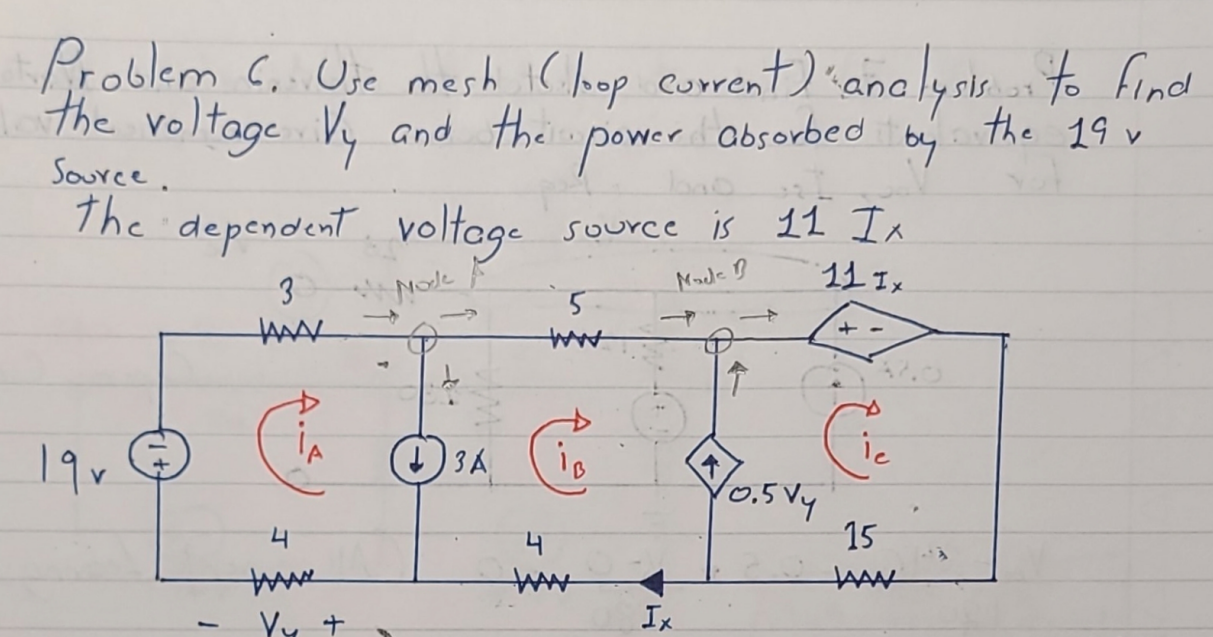 Problem 6. Use mesh (loop current) analysis to find
the voltage Vy and the power absorbed by the 19 v
Source.
The dependent voltage source is 11 Ix
3
Node A
5
Node B
11 Ix
+ -
19 v
-
+
iA
3A
iB
ic
0.5 Vy
4
4
15
- Vy +
Ix